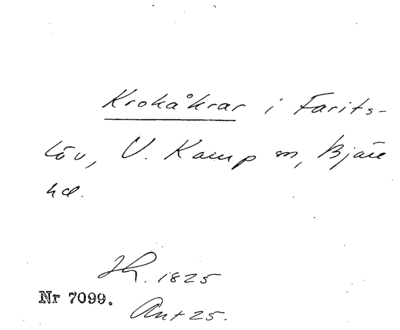 Krokåkrar i Farits-
löv, V. Karup sn, Bjäre
hd.
Jh. 1825
Nr 7099.
Ant 25.